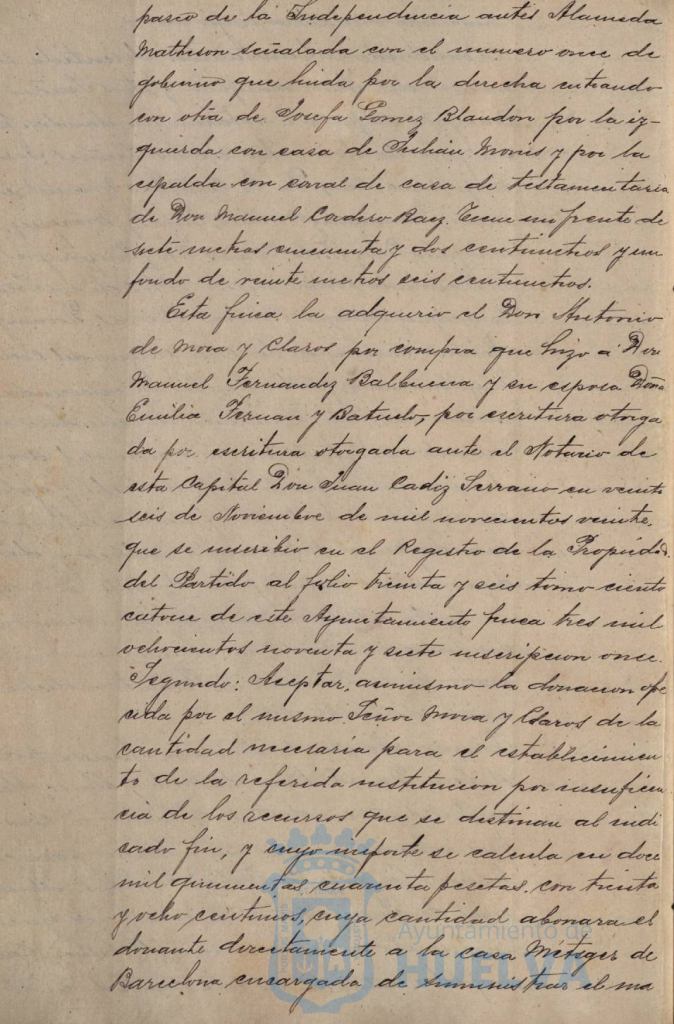 paseo de la Independencia antes Alameda
Matheson señalada con el numero once de
gobierno que linda por la derecha entrando
con otra de Josefa Gomez Blandon por la iz-
quierda con casa de Julián Monis y por la
espalda con corral de casa de testamentaria
de Don Manuel Cordero Baez. Tiene un frente de
siete metros cincuenta y dos centimetros y un
fondo de veinte metros seis centimetros.
Esta finca, la adquirio el Don Antonio
de Mora y Claros por compra que hizo á Don
Manuel Fernandez Balbuena y su esposa Doña
Emilia y por escritura otorga
da por escritura otorgada ante el Notario de
esta Capital Don Juan Cadiz Serrano en veinte
seis de Noviembre de mil novecientos veinte,
que se inscribio en el Registro de la Propiedad
del Partido al folio treinta y seis tomo ciento
catorce de este Ayuntamiento finca tres mil
ochocientos noventa y siete inscripcion once.
Segundo: Aceptar, asimismo la donacion ofre
cida por el mismo Señor Mora y Claros de la
cantidad necesaria para el establecimien
to de la referida institucion por insuficien
cia de los recursos que se destinan al indi
cado fin, y cuyo importe se calcula en doce
mil quinientas cuarenta pesetas, con treinta
y ocho centimos, cuya cantidad abonara el
donante directamente a la casa Métzger de
Barcelona encargada de suministrar el ma
Ayuntamiento de
HUELVA